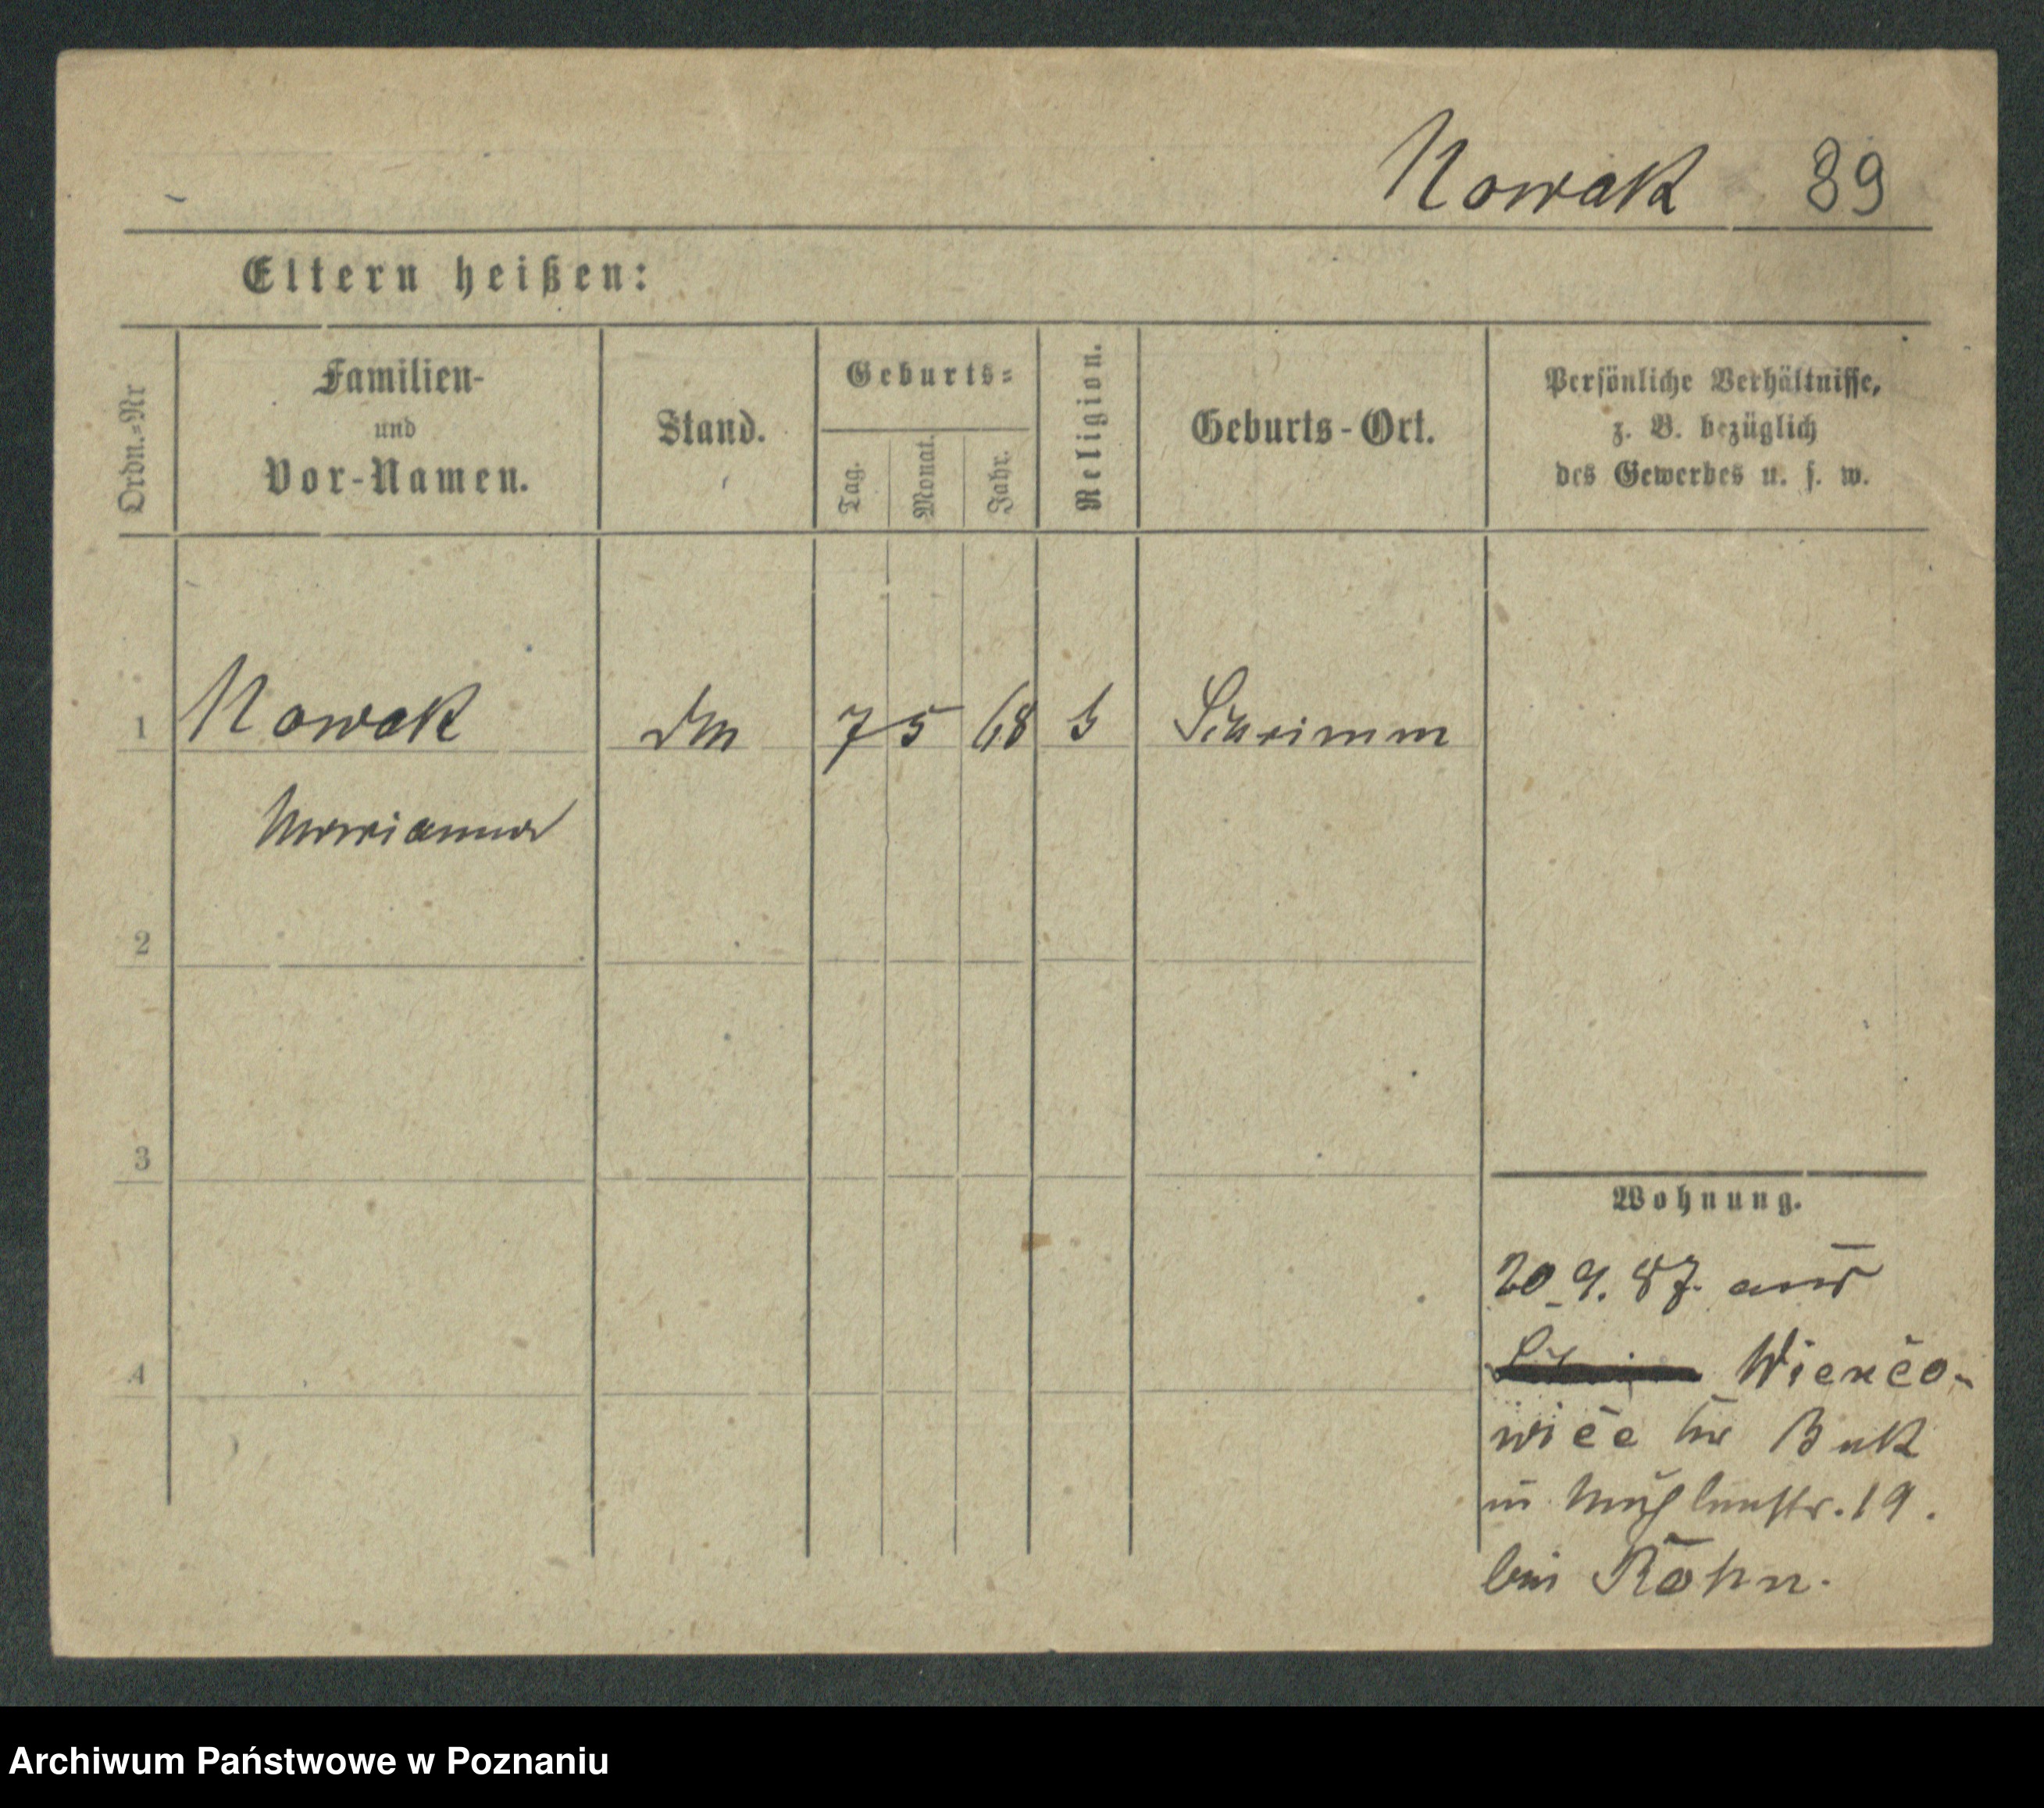 Nowak 89
Eltern heißen:
Ordn.=Nr
Familien-
und
Vor-Namen.
Stand.
Geburts=
Tag.
Monat.
Jahr.
Religion.
Geburts-Ort.
Persönliche Verhältnisse,
z. B. bezüglich
des Gewerbes u. s. w.
1 Nowak 7 5 68 Schrimm
Marianna
2
3
4
Wohnung.
20_9. 87. aus
Buk
n Mühlenstr. 19.
bei
Archiwum Państwowe w Poznaniu